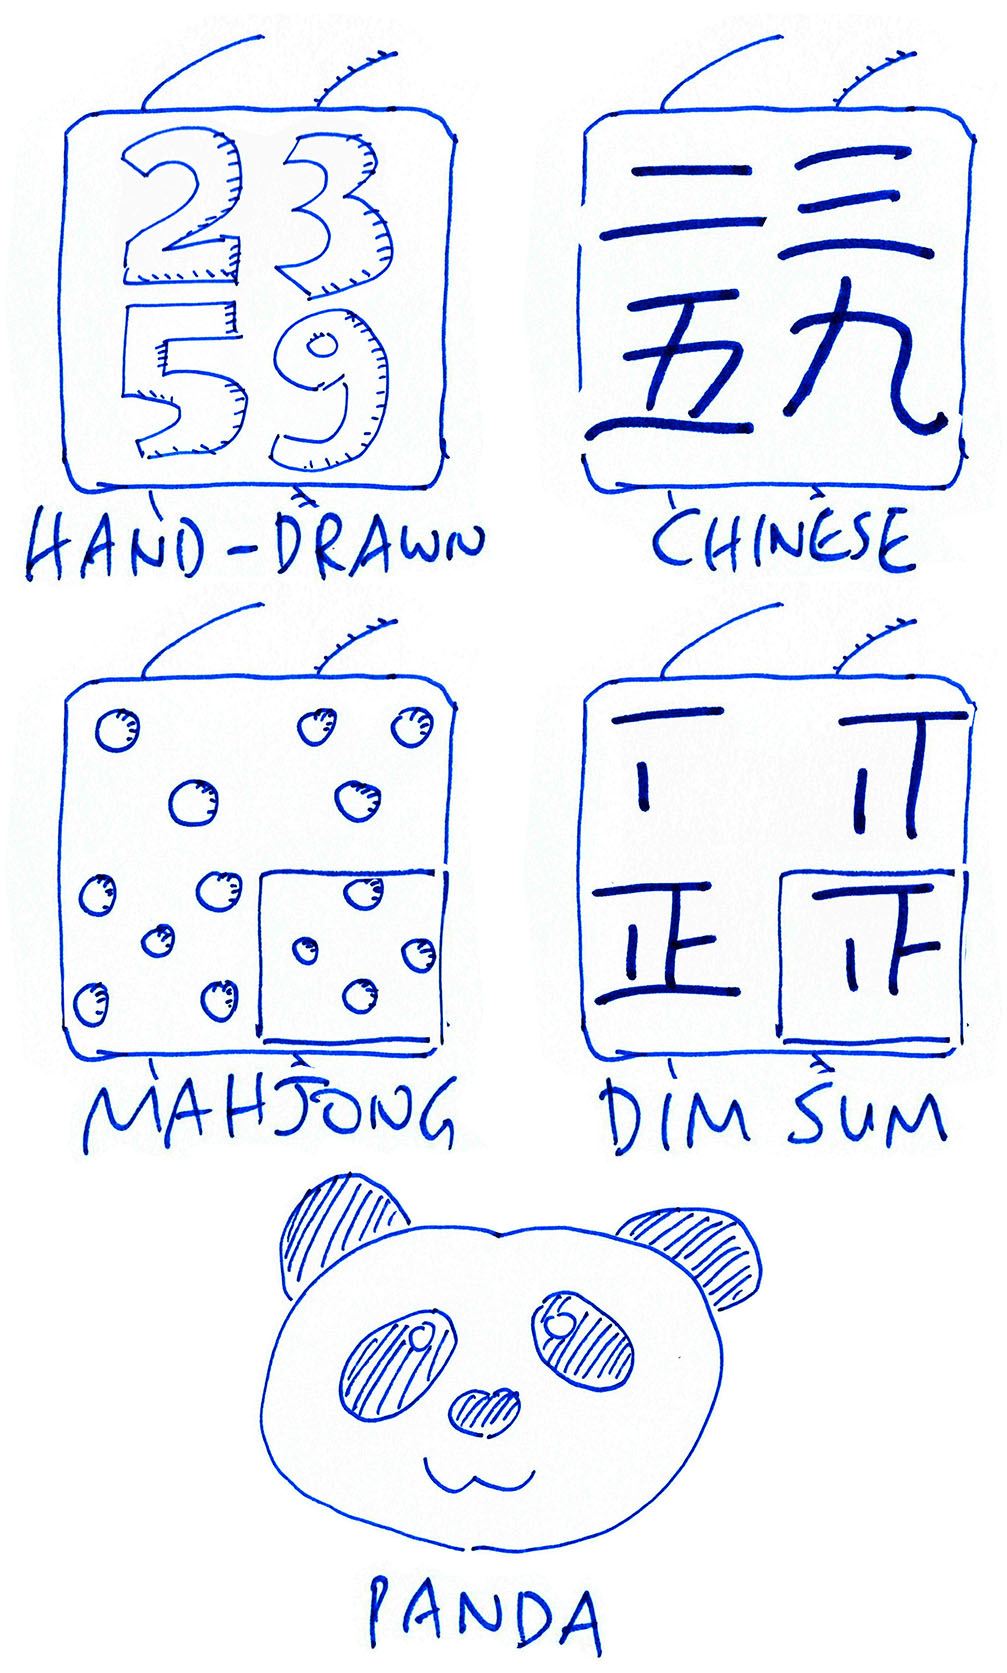 23
59
HAND-DRAWN
二三
五九
CHINESE
MAHJONG
正
DIM SUM
PANDA